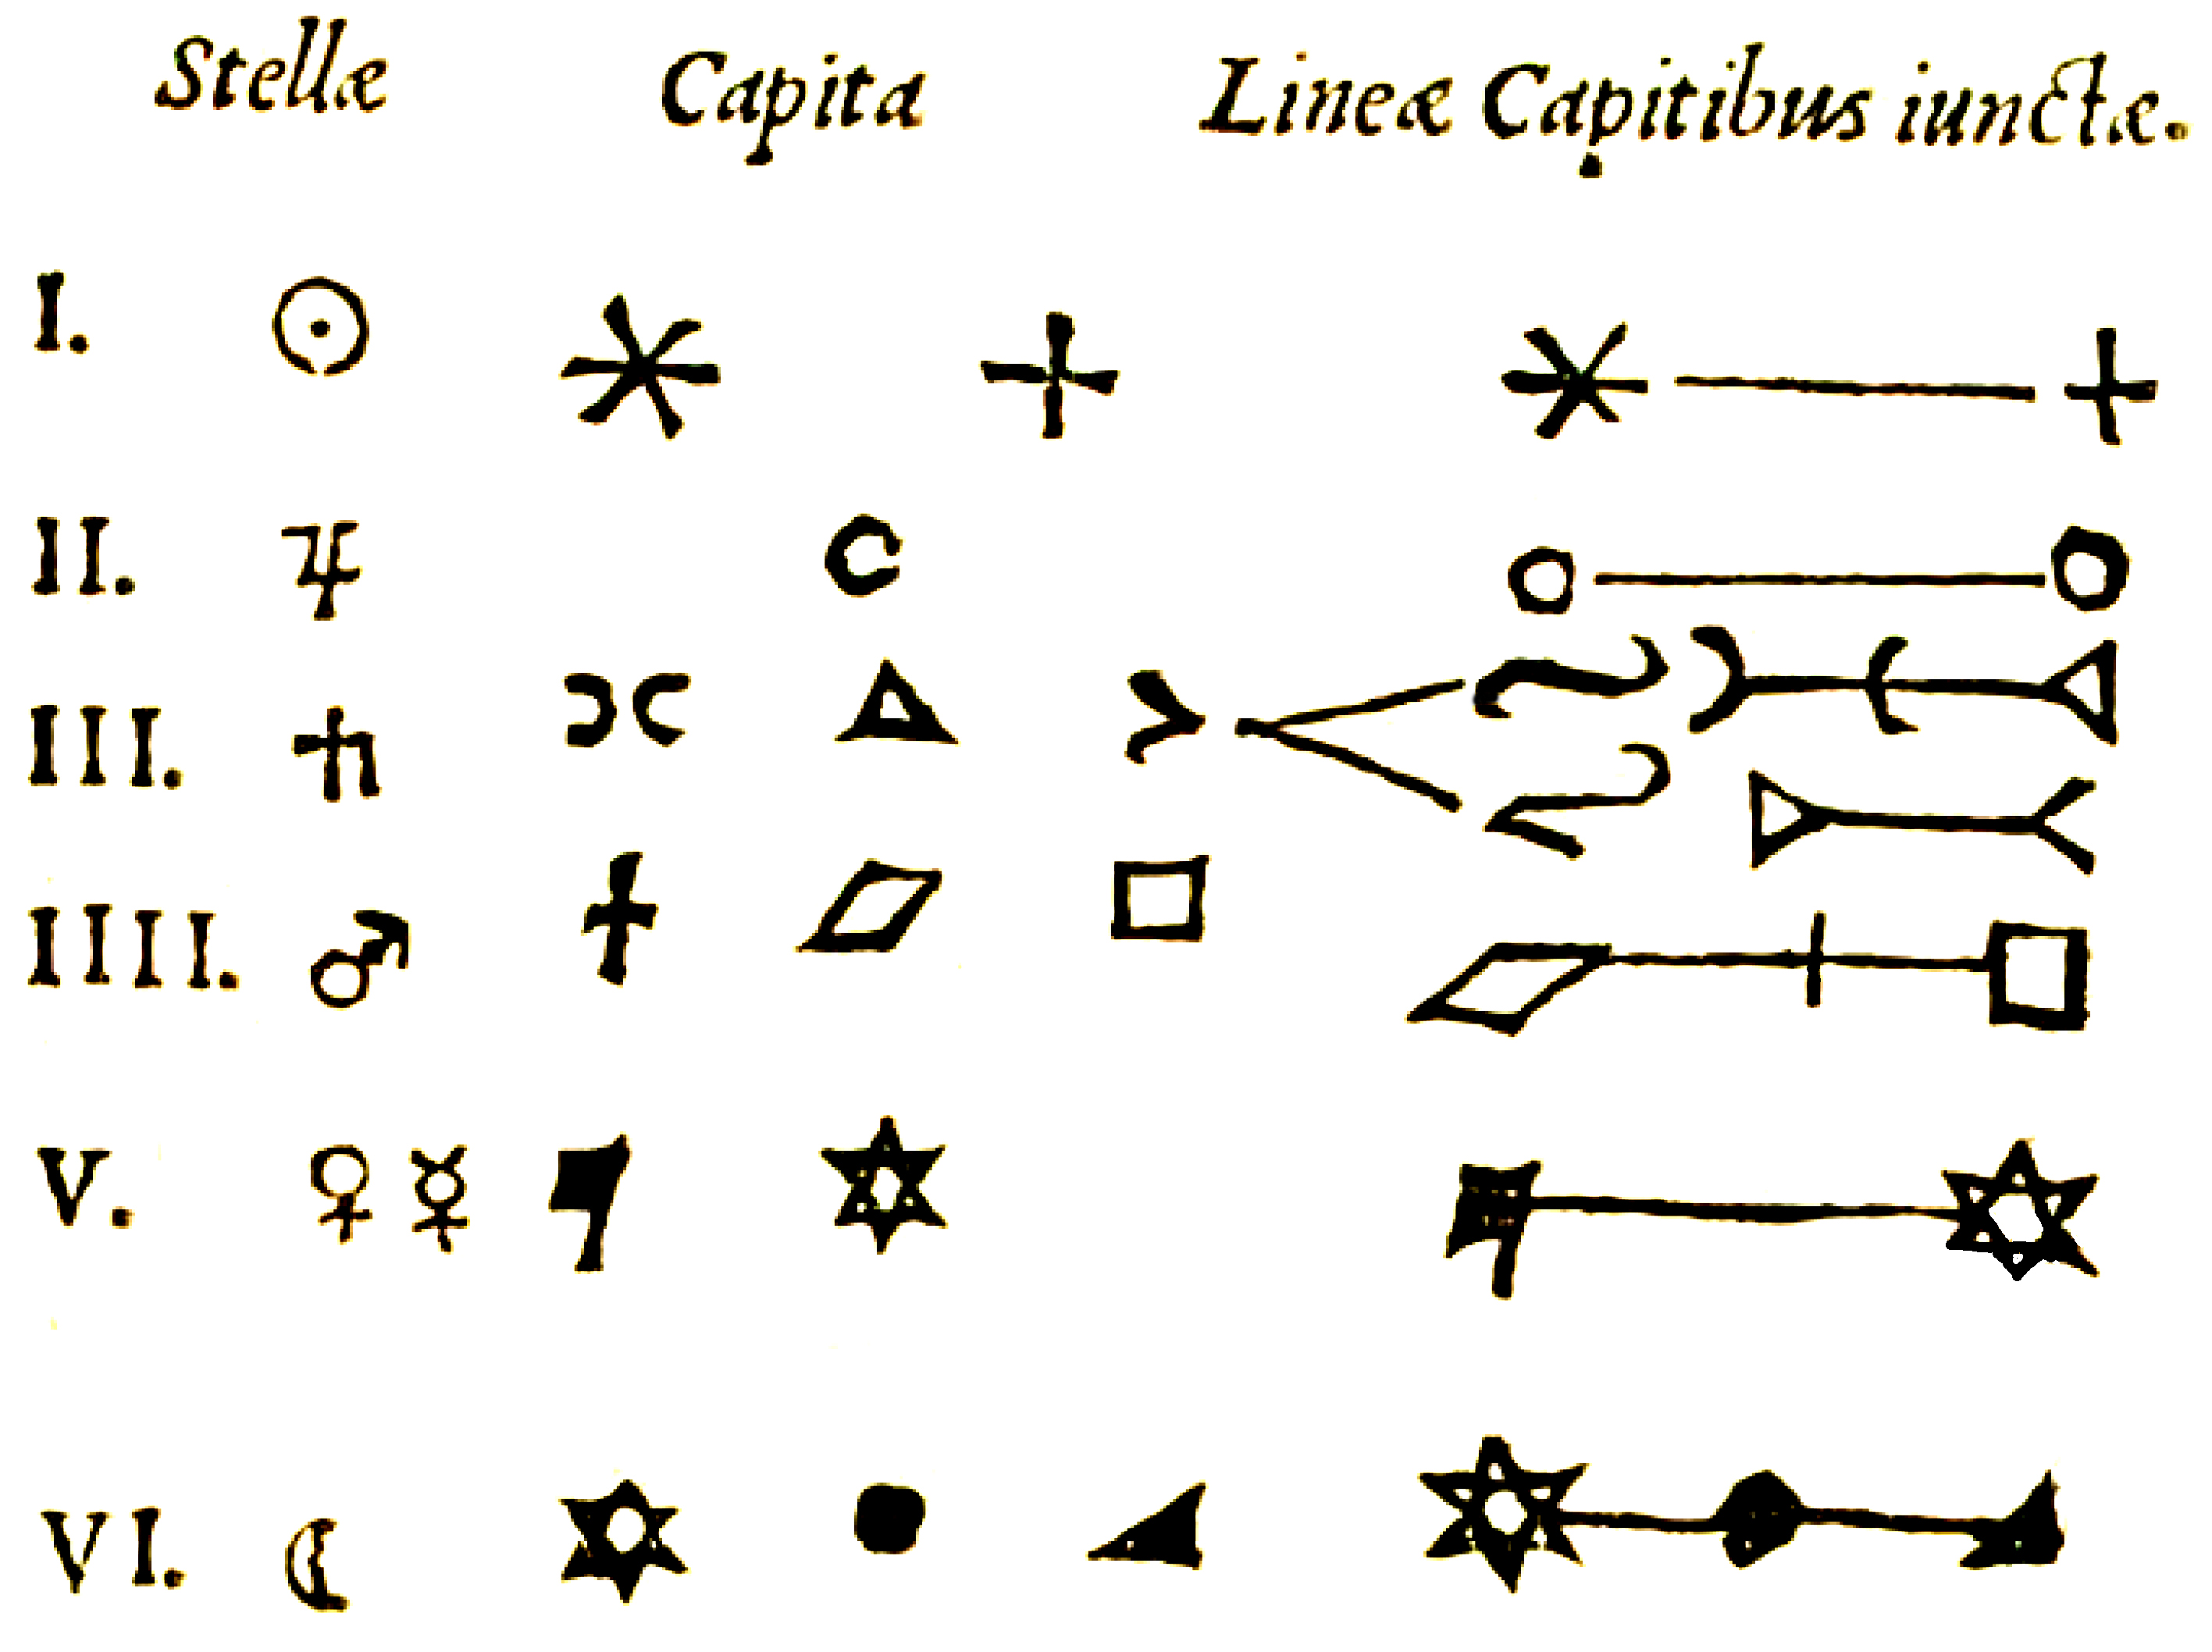 Stellæ Capita Lineæ Capitibus iunctæ.
I. ☉
II. ♃
III. ♄
IIII. ♂
V. ♀ ☿
VI. ☾